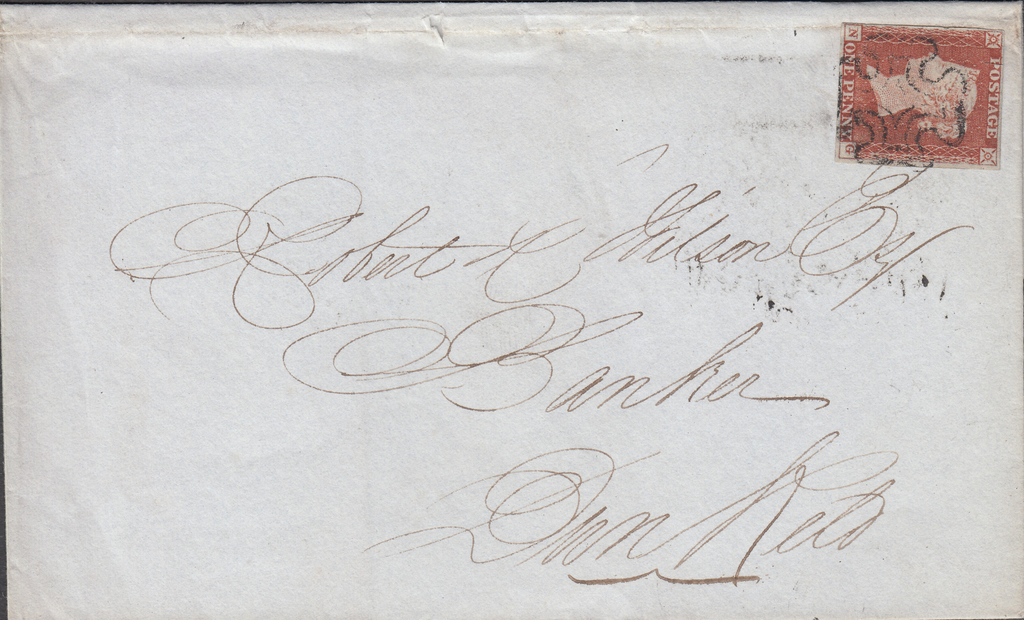 POSTAGE
ONE PENNY
N G
Robert A Gilson Esq
Banker
Dun Keld